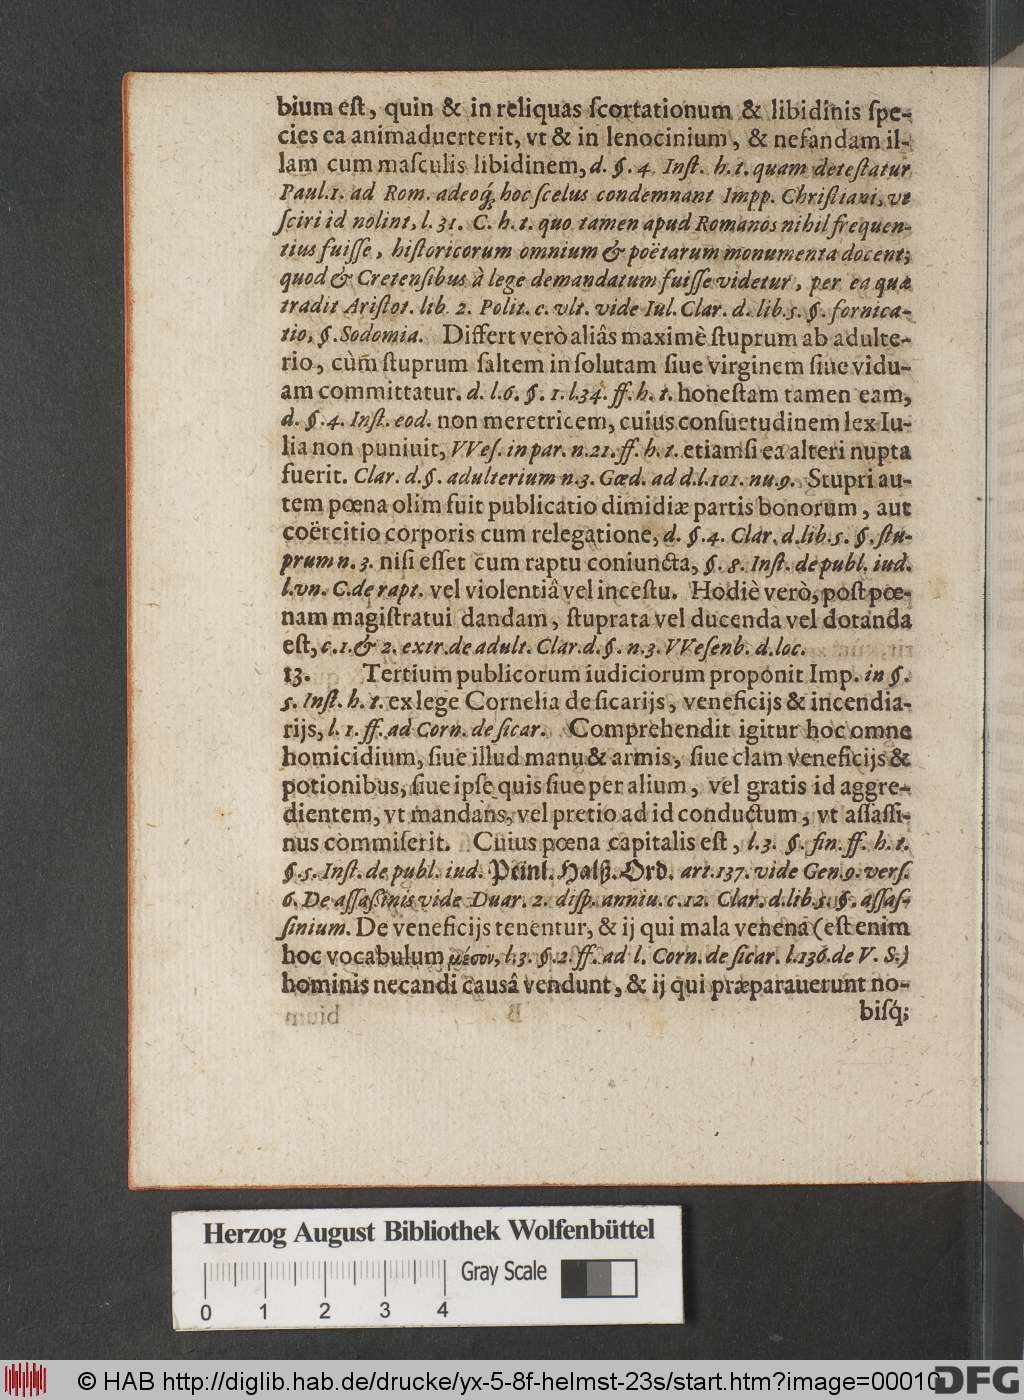 bium eſt, quin & in reliquas ſcortationum & libidinis ſpe-
cies ea animaduerterit, vt & in lenocinium, & nefandam il-
lam cum maſculis libidinem, d. §. 4. Inſt. h. t. quam deteſtatur
Paul. 1. ad Rom. adeoq́; hoc ſcelus condemnant Impp. Chriſtiani, vt
ſciri id nolint, l. 31. C. h. t. quo tamen apud Romanos nihil frequen-
tius fuiſſe, hiſtoricorum omnium & poëtarum monumenta docent;
quod & Cretenſibus à lege demandatum fuiſſe videtur, per ea quæ
tradit Ariſtot. lib. 2. Polit. c. vlt. vide Iul. Clar. d. lib. 5. §. fornica-
tio, §. Sodomia. Differt verò aliâs maximè ſtuprum ab adulte-
rio, cùm ſtuprum ſaltem in ſolutam ſiue virginem ſiue vidu-
am committatur. d. l. 6. §. 1. l. 34. ff. h. t. honeſtam tamen eam,
d. §. 4. Inſt. eod. non meretricem, cuius conſuetudinem lex Iu-
lia non puniuit, VVeſ. in par. n. 21. ff. h. t. etiamſi ea alteri nupta
fuerit. Clar. d. §. adulterium n. 3. Gœd. ad d. l. 101. nu. 9. Stupri au-
tem pœna olim fuit publicatio dimidiæ partis bonorum, aut
coërcitio corporis cum relegatione, d. §. 4. Clar. d. lib. 5. §. ſtu-
prum n. 3. niſi eſſet cum raptu coniuncta, §. 8. Inſt. de publ. iud.
l. vn. C. de rapt. vel violentiâ vel inceſtu. Hodiè verò, poſt pœ-
nam magiſtratui dandam, ſtuprata vel ducenda vel dotanda
eſt, c. 1. & 2. extr. de adult. Clar. d. §. n. 3. VVeſenb. d. loc.
13. Tertium publicorum iudiciorum proponit Imp. in §.
5. Inſt. h. t. ex lege Cornelia de ſicarijs, veneficijs & incendia-
rijs, l. 1. ff. ad Corn. de ſicar. Comprehendit igitur hoc omne
homicidium, ſiue illud manu & armis, ſiue clam veneficijs &
potionibus, ſiue ipſe quis ſiue per alium, vel gratis id aggre-
dientem, vt mandans, vel pretio ad id conductum, vt aſſaſſi-
nus commiſerit. Cuius pœna capitalis eſt, l. 3. §. fin. ff. h. t.
§. 5. Inſt. de publ. iud. Peinl. Halß. Ord. art. 137. vide Gen. 9. verſ.
6. De aſſaßinis vide Duar. 2. diſp. anniu. c. 12. Clar. d. lib. 5. §. aſſaſ-
ſinium. De veneficijs tenentur, & ij qui mala venena (eſt enim
hoc vocabulum μέσον, l. 3. §. 2. ff. ad l. Corn. de ſicar. l. 136. de V. S.)
hominis necandi causâ vendunt, & ij qui præparauerunt no-
biſq́;
Herzog August Bibliothek Wolfenbüttel
Gray Scale
0 1 2 3 4
© HAB http://diglib.hab.de/drucke/yx-5-8f-helmst-23s/start.htm?image=00010
DFG